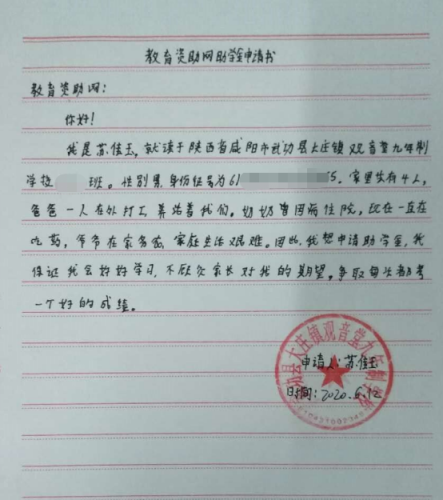 教育资助网助学金申请书
教育资助网：
你好！
我是苏佳玉，就读于陕西省咸阳市武功县大庄镇观音堂九年制
学校 班。性别男，身份证号为61 5。家里共有4人，
爸爸一人在外打工养活着我们。奶奶曾因病住院，现在一直在
吃药，爷爷在家务农，家庭生活艰难。因此，我想申请助学金，我
保证我会好好学习，不辜负家长对我的期望。争取每次都考
一个好的成绩。
大庄镇观音堂九年制
申请人：苏佳玉
时间：2020.6.12